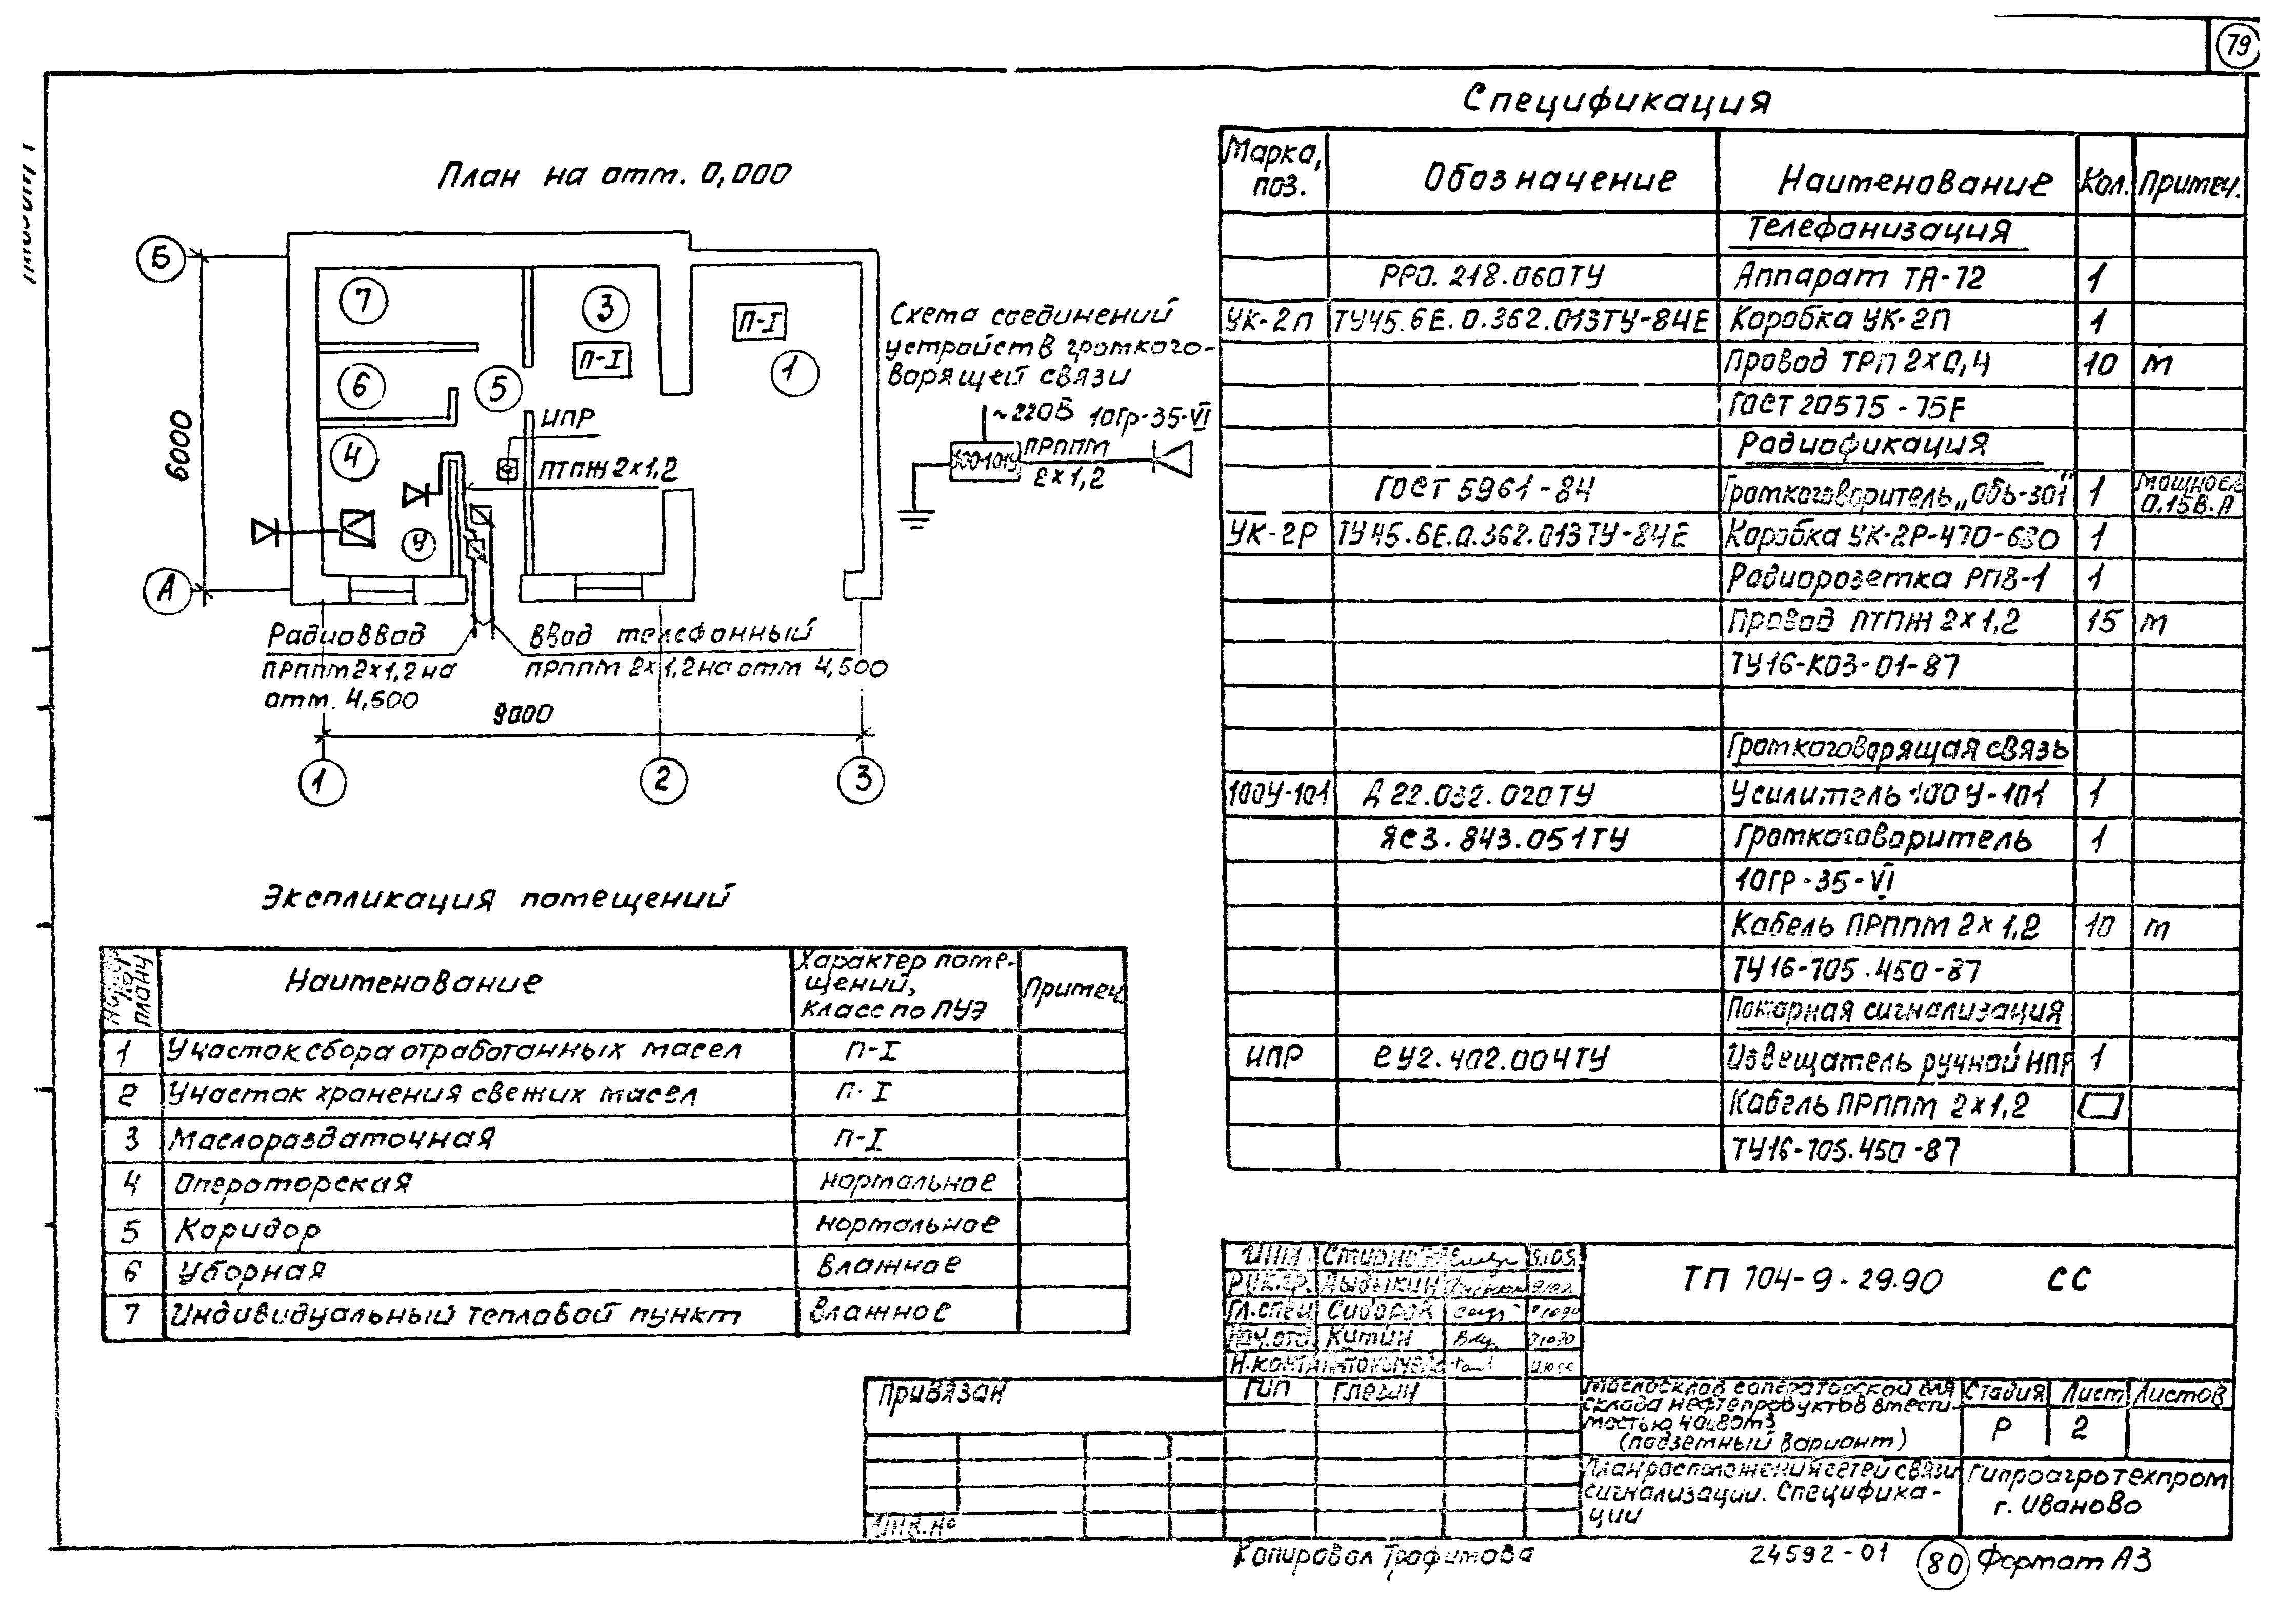 79
План на отм. 0,000
Б
А
7
3
П-I
П-I
1
6
5
4
У
ИПР
ПТПЖ 2х1,2
6000
Радиоввод
ПРППМ 2х1,2 на
отм. 4,500
Ввод телефонный
ПРППМ 2х1,2 на отм 4,500
9000
1
2
3
Схема соединений
устройств громкого-
ворящей связи
~220В
10Гр-35-VI
ПРППМ
2х1,2
Экспликация помещений
Наименование
Характер поме-
щений,
класс по ПУЭ
Примеч.
1 Участок сбора отработанных масел П-I
2 Участок хранения свежих масел П-I
3 Маслораздаточная П-I
4 Операторская нормальное
5 Коридор нормальное
6 Уборная влажное
7 Индивидуальный тепловой пункт влажное
Спецификация
Марка, поз. Обозначение Наименование Кол. Примеч.
Телефонизация
РРО. 218.060ТУ Аппарат ТА-72 1
УК-2П ТУ45.6Е.0.362.013ТУ-84Е Коробка УК-2П 1
Провод ТРП 2х0,4 10 м
ГОСТ 20575-75Е
Радиофикация
ГОСТ 5961-84 Громкоговоритель „Обь-301" 1 0,15В.А
УК-2Р ТУ45.6Е.0.362.013ТУ-84Е Коробка УК-2Р-470-680 1
Радиорозетка РПВ-1 1
Провод ПТПЖ 2х1,2 15 м
ТУ16-К03-01-87
Громкоговорящая связь
100У-101 Д22.032.020ТУ Усилитель 100У-101 1
ЯС3.843.051ТУ Громкоговоритель 1
10ГР-35-VI
Кабель ПРППМ 2х1,2 10 м
ТУ16-705.450-87
Пожарная сигнализация
ИПР еУ2.402.004ТУ Извещатель ручной ИПР 1
Кабель ПРППМ 2х1,2
ТУ16-705.450-87
Рук.гр.
Гл.спец
Нач.отд. Китин
Н.контр
ГИП
ТП 704-9-29.90 СС
Маслосклад с операторской для
склада нефтепродуктов вмести-
мостью
(подземный вариант)
Стадия Лист Листов
Р 2
План расположения сетей связи
сигнализации. Специфика-
ции
Гипроагротехпром
г. Иваново
Привязан
Инв.№
Копировал Трофимова
24592-01
80
Формат А3